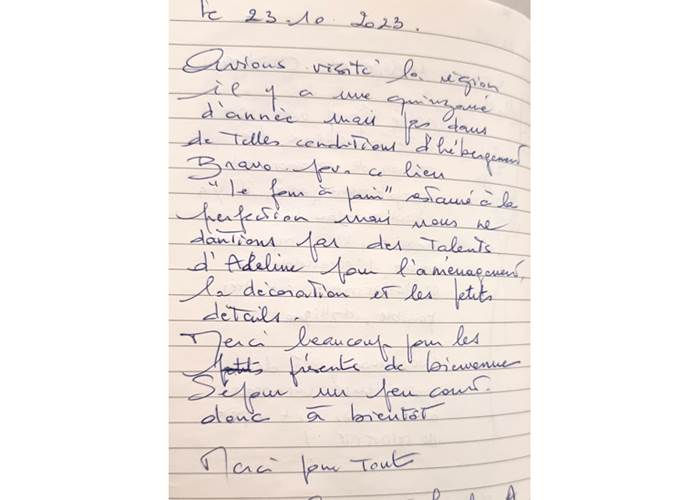 le 23.10 2023.
Avions visité la région
il y a une quinzaine
d'année mais pas dans
de telles conditions d'hébergement
Bravo pour ce lieu
"le four à pain" restauré à la
perfection mais nous ne
doutions pas des talents
d'Adeline pour l'aménagement,
la décoration et les petits
détails.
Merci beaucoup pour les
présents de bienvenue
Séjour un peu court.
donc à bientôt
Merci pour Tout